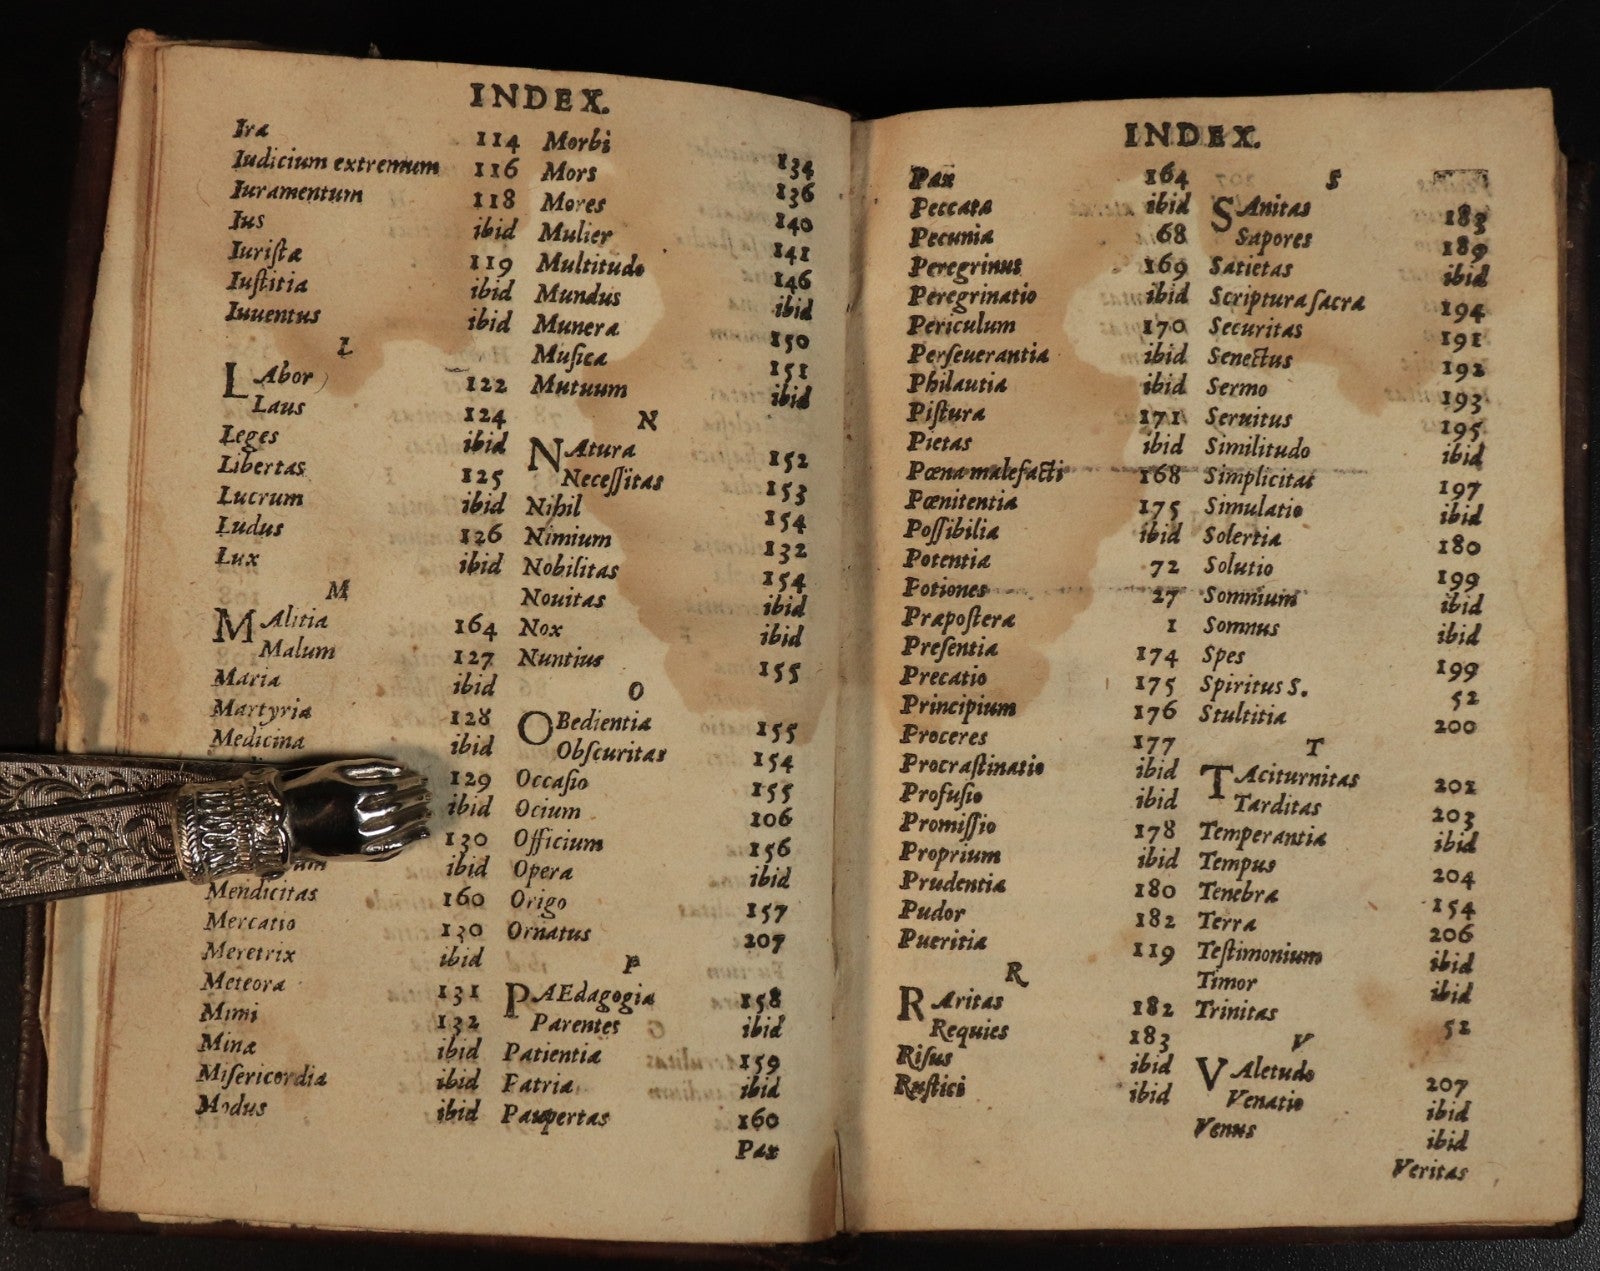 INDEX.
Ira 114
Iudicium extremum 116
Iuramentum 118
Ius ibid
Iuriſtæ 119
Iuſtitia ibid
Iuuentus ibid
L
LAbor 122
Laus 124
Leges ibid
Libertas 125
Lucrum ibid
Ludus 126
Lux ibid
M
MAlitia 164
Malum 127
Maria ibid
Martyria 128
Medicina ibid
129
ibid
130
ibid
Mendicitas 160
Mercatio 130
Meretrix ibid
Meteora 131
Mimi 132
Minæ ibid
Miſericordia ibid
Modus ibid
Morbi 134
Mors 136
Mores 140
Mulier 141
Multitudo 146
Mundus ibid
Munera 150
Muſica 151
Mutuum ibid
N
NAtura 152
Neceſſitas 153
Nihil 154
Nimium 132
Nobilitas 154
Nouitas ibid
Nox ibid
Nuntius 155
O
OBedientia 155
Obſcuritas 154
Occaſio 155
Ocium 106
Officium 156
Opera ibid
Origo 157
Ornatus 207
P
PAEdagogia 158
Parentes ibid
Patientia 159
Patria ibid
Paupertas 160
Pax
INDEX.
Pax 164
Peccata ibid
Pecunia 68
Peregrinus 169
Peregrinatio ibid
Periculum 170
Perſeuerantia ibid
Philautia ibid
Piſtura 171
Pietas ibid
Pœna malefacti 168
Pœnitentia 175
Poſſibilia ibid
Potentia 72
Potiones 27
Præpoſtera 1
Preſentia 174
Precatio 175
Principium 176
Proceres 177
Procraſtinatio ibid
Profuſio ibid
Promiſſio 178
Proprium ibid
Prudentia 180
Pudor 182
Pueritia 119
R
RAritas 182
Requies 183
Riſus ibid
Ruſtici ibid
S
SAnitas 183
Sapores 189
Satietas ibid
Scriptura ſacra 194
Securitas 191
Senectus 192
Sermo 193
Seruitus 195
Similitudo ibid
Simplicitas 197
Simulatio ibid
Solertia 180
Solutio 199
Somnium ibid
Somnus ibid
Spes 199
Spiritus S. 52
Stultitia 200
T
TAciturnitas 202
Tarditas 203
Temperantia ibid
Tempus 204
Tenebræ 154
Terra 206
Teſtimonium ibid
Timor ibid
Trinitas 52
V
VAletudo 207
Venatio ibid
Venus ibid
Veritas